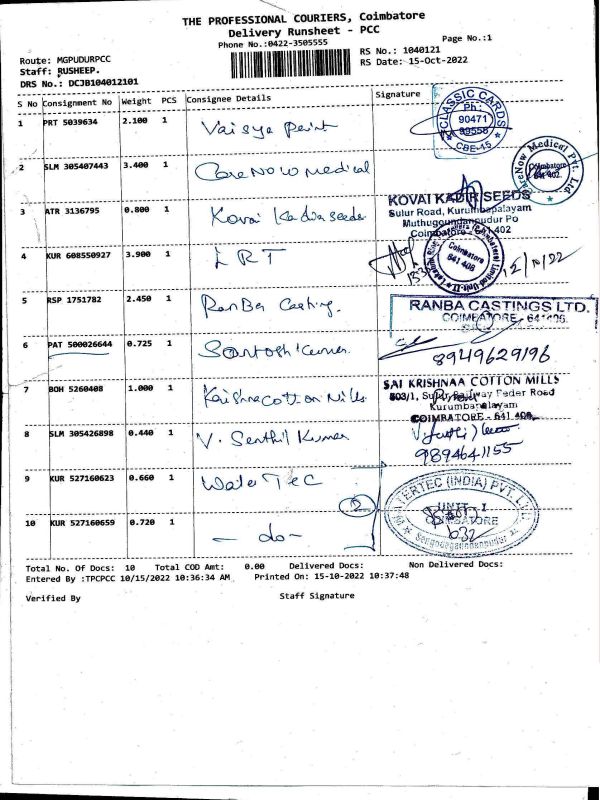 THE PROFESSIONAL COURIERS, Coimbatore
Delivery Runsheet - PCC
Phone No.:0422-3505555
Page No.:1
Route: MGPUDURPCC
RS No.: 1040121
Staff: RUSHEEP.
RS Date: 15-Oct-2022
DRS No.: DCJB104012101
S No Consignment No Weight PCS Consignee Details Signature
1 PRT 5039634 2.100 1 Vaisya Paint
CLASSIC CARDS
Ph:
90471
89558
CBE-15
2 SLM 305407443 3.400 1 CareNow medical
CareNow Medical Pvt. Ltd
Coimbatore
641 402.
3 ATR 3136795 0.800 1 Kovai Kadir seeds
KOVAI KADIR SEEDS
Sulur Road, Kurumbapalayam
Muthugoundanpudur Po
Coimbatore - 641 402
4 KUR 608550927 3.900 1 LRT
Coimbatore
641 406
12/10/22
5 RSP 1751782 2.450 1 RanBa Casting.
RANBA CASTINGS LTD.
COIMBATORE - 641406
6 PAT 500026644 0.725 1 Santosh Kumar
8949629196
7 BOH 5260408 1.000 1 Krishna Cotton Mills
SAI KRISHNAA COTTON MILLS
503/1, Sulur Railway Feder Road
Kurumbapalayam
COIMBATORE - 641 406.
8 SLM 305426898 0.440 1 V. Senthil Kumar
9894641155
9 KUR 527160623 0.660 1 Water Tec
WATERTEC (INDIA) PVT. LTD.
UNIT - I
COIMBATORE
10 KUR 527160659 0.720 1 - do -
2
Total No. Of Docs: 10 Total COD Amt: 0.00 Delivered Docs: Non Delivered Docs:
Entered By :TPCPCC 10/15/2022 10:36:34 AM Printed On: 15-10-2022 10:37:48
Verified By Staff Signature